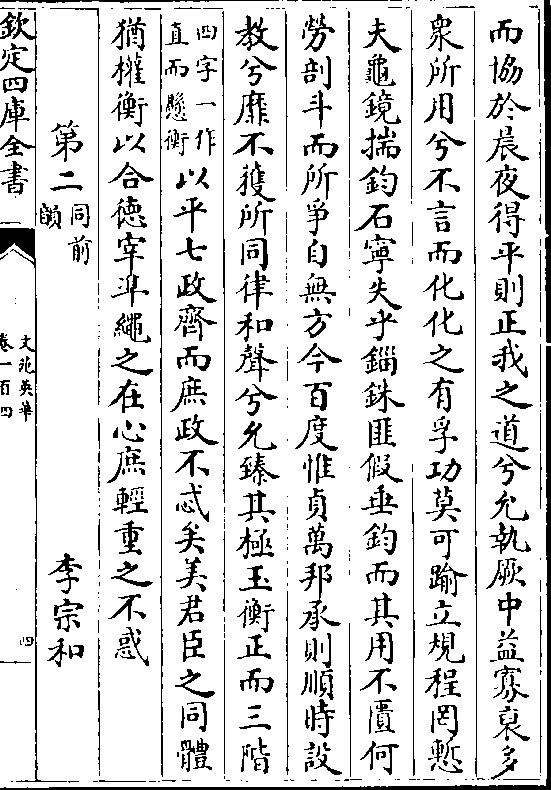 而協於晨夜得平則正我之道兮允執厥中益寡裒多
衆所用兮不言而化化之有孚功莫可踰立規程罔愆
夫龜鏡揣鈞石寧失乎錙銖匪假垂鈞而其用不匱何
勞剖斗而所爭自無方今百度惟貞萬邦承則順時設
教兮靡不獲所同律和聲兮允臻其極玉衡正而三階
四字一作
直而懸衡
以平七政齊而庶政不忒矣美君臣之同體
猶權衡以合德宰準繩之在心庶輕重之不惑
第二
同前
韻
李宗和
欽定四庫全書
文苑英華
卷一百四
四